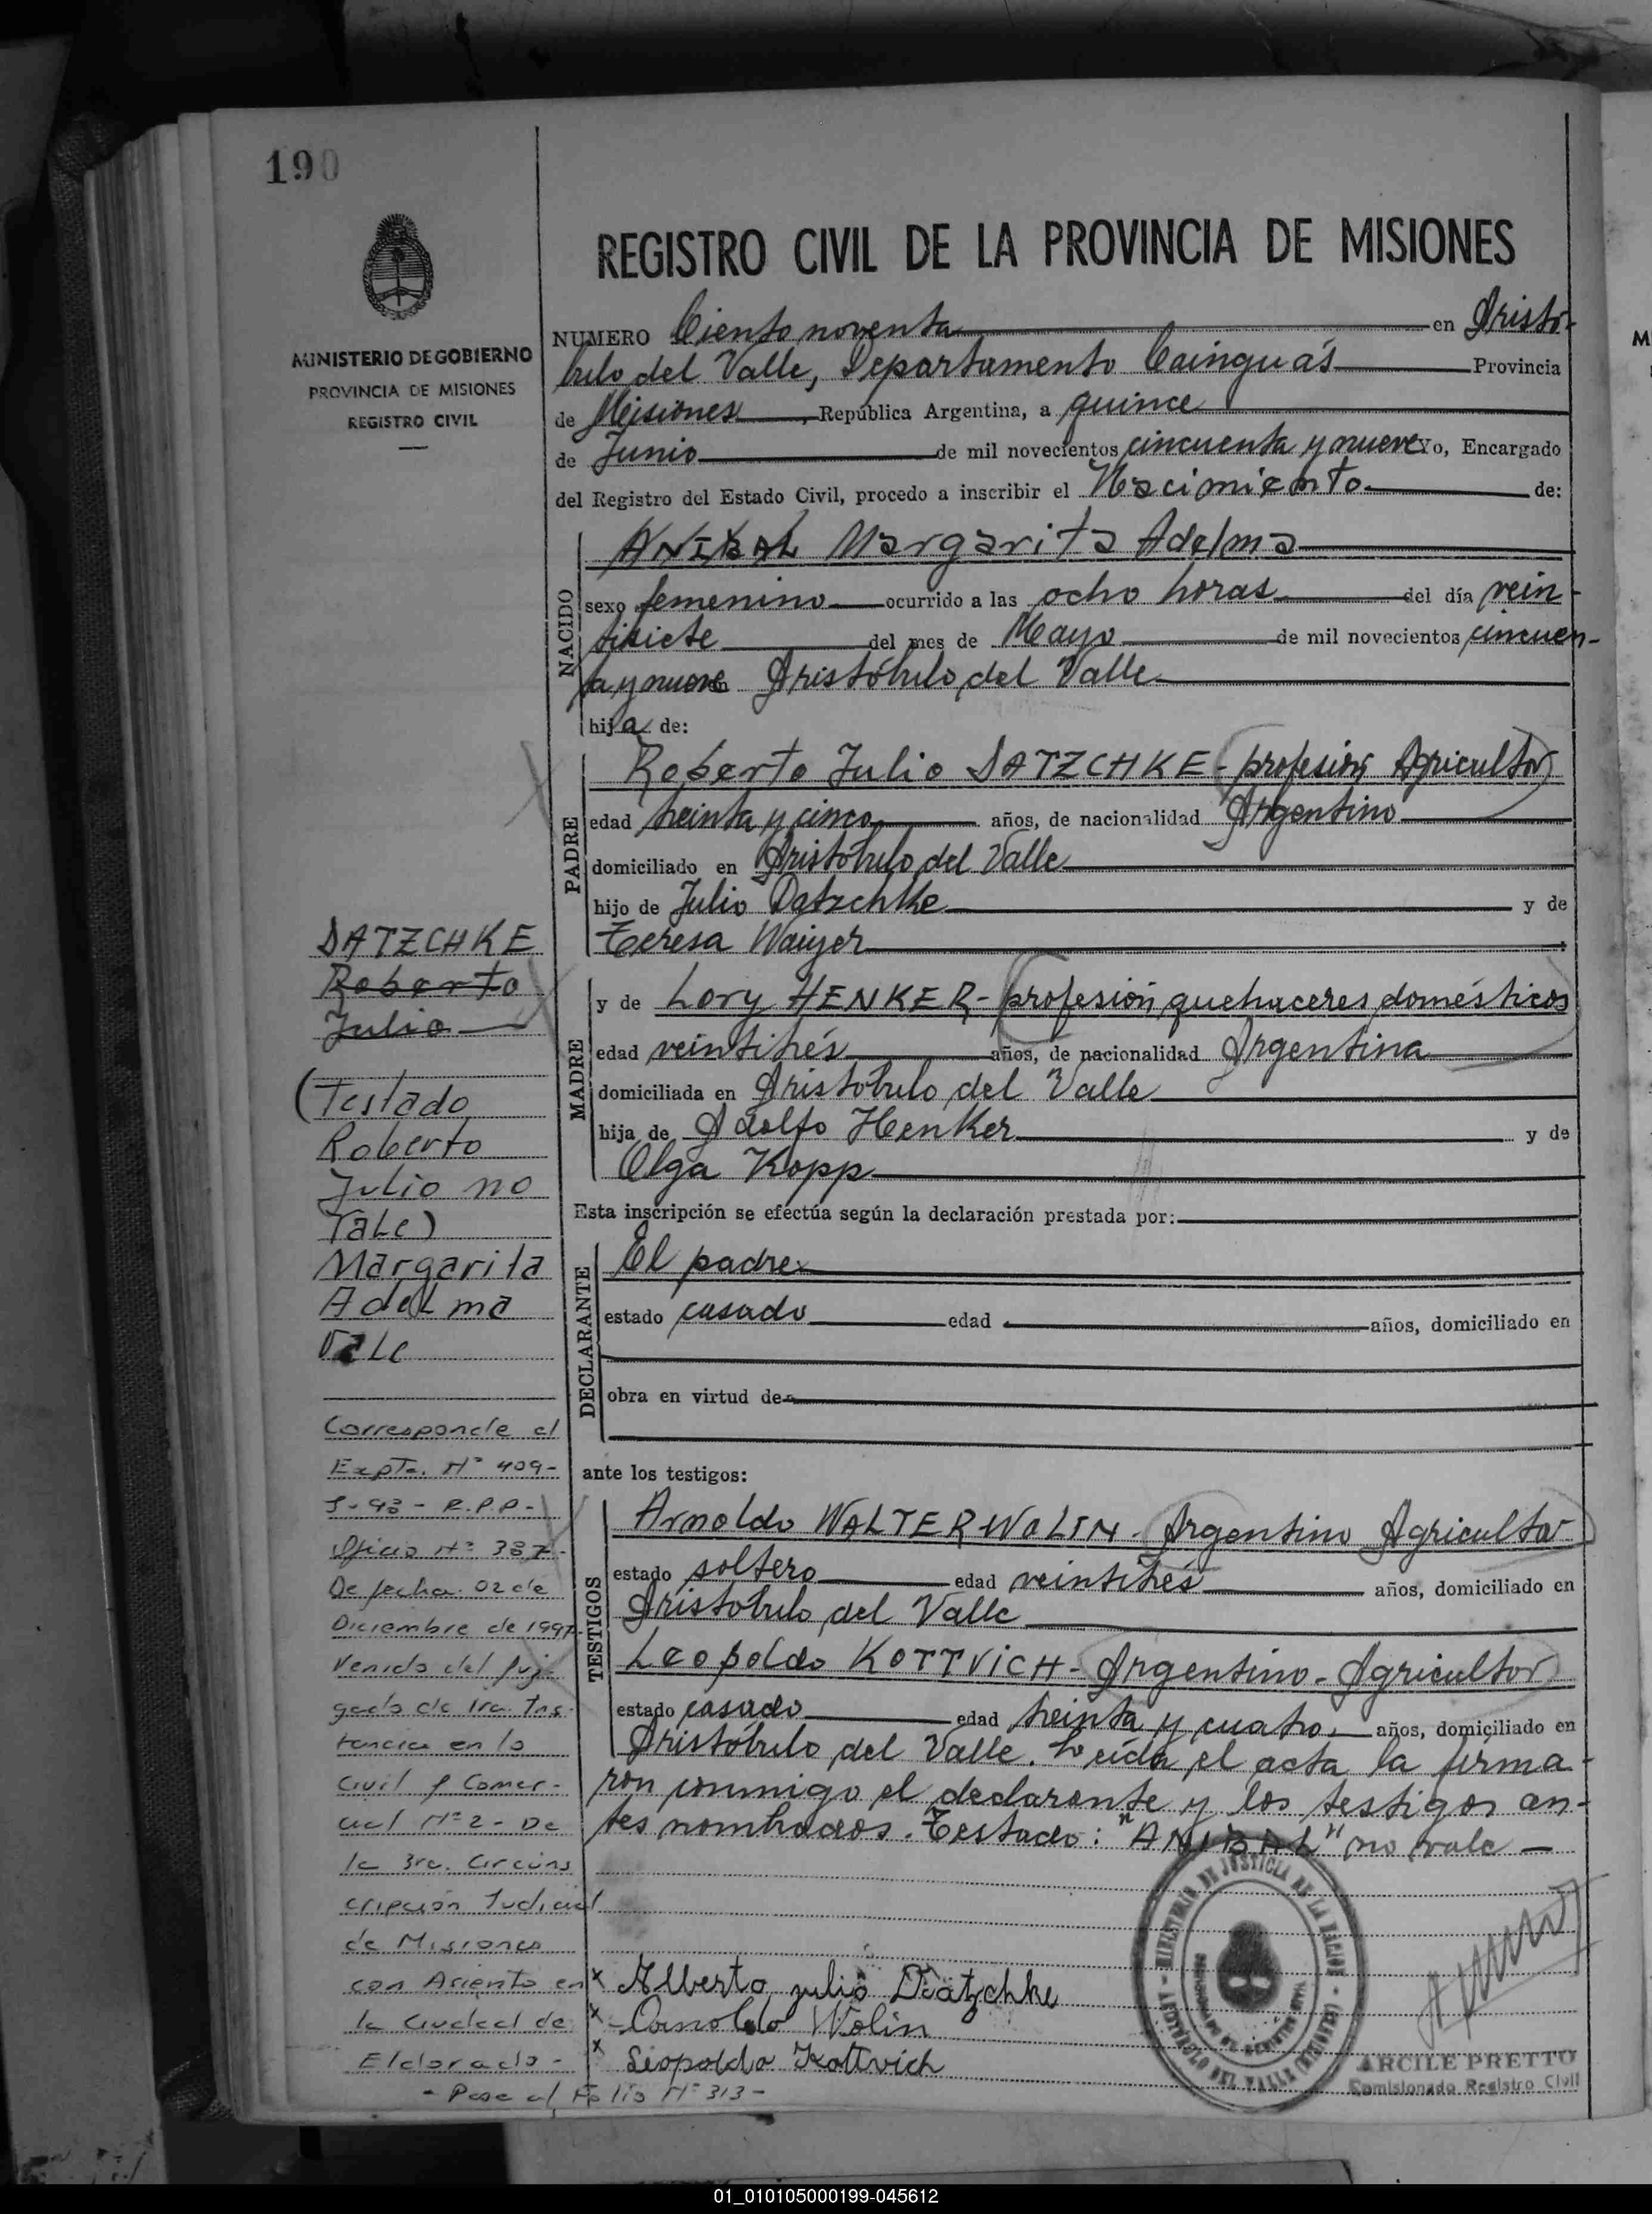 190
MINISTERIO DE GOBIERNO
PROVINCIA DE MISIONES
REGISTRO CIVIL
REGISTRO CIVIL DE LA PROVINCIA DE MISIONES
NUMERO Ciento noventa en Aristó-
bulo del Valle, Departamento Cainguás Provincia
de Misiones, República Argentina, a quince
de Junio de mil novecientos cincuenta y nueve Yo, Encargado
del Registro del Estado Civil, procedo a inscribir el Nacimiento de:
NACIDO
ANIBAL Margarita Adelma
sexo femenino ocurrido a las ocho horas del día vein-
tisiete del mes de Mayo de mil novecientos cincuen-
ta y nueve Aristóbulo del Valle
hija de:
PADRE
Roberto Julio DATZCHKE - profesión Agricultor
edad treinta y cinco años, de nacionalidad Argentino
domiciliado en Aristóbulo del Valle
hijo de Julio Datzchke y de
Teresa Waiyer
MADRE
y de Lory HENKER - profesión quehaceres domésticos
edad veintitrés años, de nacionalidad Argentina
domiciliada en Aristóbulo del Valle
hija de Adolfo Henker y de
Olga Kopp
Esta inscripción se efectúa según la declaración prestada por:
DECLARANTE
El padre
estado casado edad años, domiciliado en
obra en virtud de
ante los testigos:
TESTIGOS
Arnoldo WALTER WOLIN - Argentino Agricultor
estado soltero edad veintitrés años, domiciliado en
Aristóbulo del Valle
Leopoldo KOTTVICH - Argentino - Agricultor
estado casado edad treinta y cuatro años, domiciliado en
Aristóbulo del Valle. Leída el acta la firma-
ron conmigo el declarante y los testigos an-
tes nombrados. Testado: "ANIBAL" no vale -
x Alberto julio Datzchke
x Arnoldo Wolin
x Leopoldo Kottvich
MINISTERIO DE JUSTICIA DE LA NACION
ARISTOBULO DEL VALLE (MISIONES)
ARCILE PRETTO
Comisionado Registro Civil
DATZCHKE
Roberto
Julio
(Testado
Roberto
Julio no
Vale)
Margarita
Adelma
Vale
Corresponde al
Expte. Nº 409-
J-93 - R.P.P-
Oficio Nº 387-
De fecha 02 de
Diciembre de 1997-
Venido del Juz-
gado de 1ra. Ins-
tancia en lo
Civil y Comer-
cial Nº 2 - De
la 3ra. Circuns
cripción Judicial
de Misiones
con Asiento en
la Ciudad de
Eldorado -
- Pase al Folio Nº 313 -
01_010105000199-045612